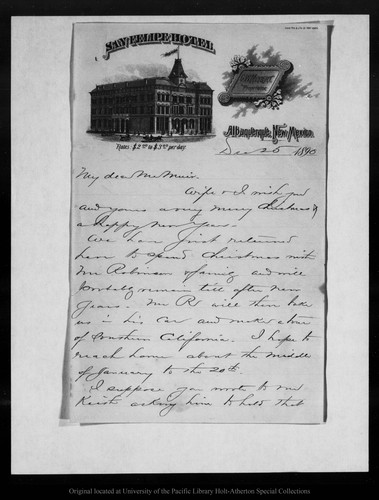 SAN FELIPE HOTEL
Proprietor.
Albuquerque, New Mexico.
Rates $2.00 to $3.00 per day.
Dec 25 1890
My dear Mr Muir.
Wife & I wish you
and yours a very merry Christmas &
a happy New Year.
We have just returned
here to spend Christmas with
Mr Robinson & family and will
probably remain till after New
Years. Mr R will then take
us in his car and make a tour
of Southern California. I hope to
reach home about the middle
of January to the 20th.
I suppose you wrote to Mr
Keith asking him to hold that
Original located at University of the Pacific Library Holt-Atherton Special Collections